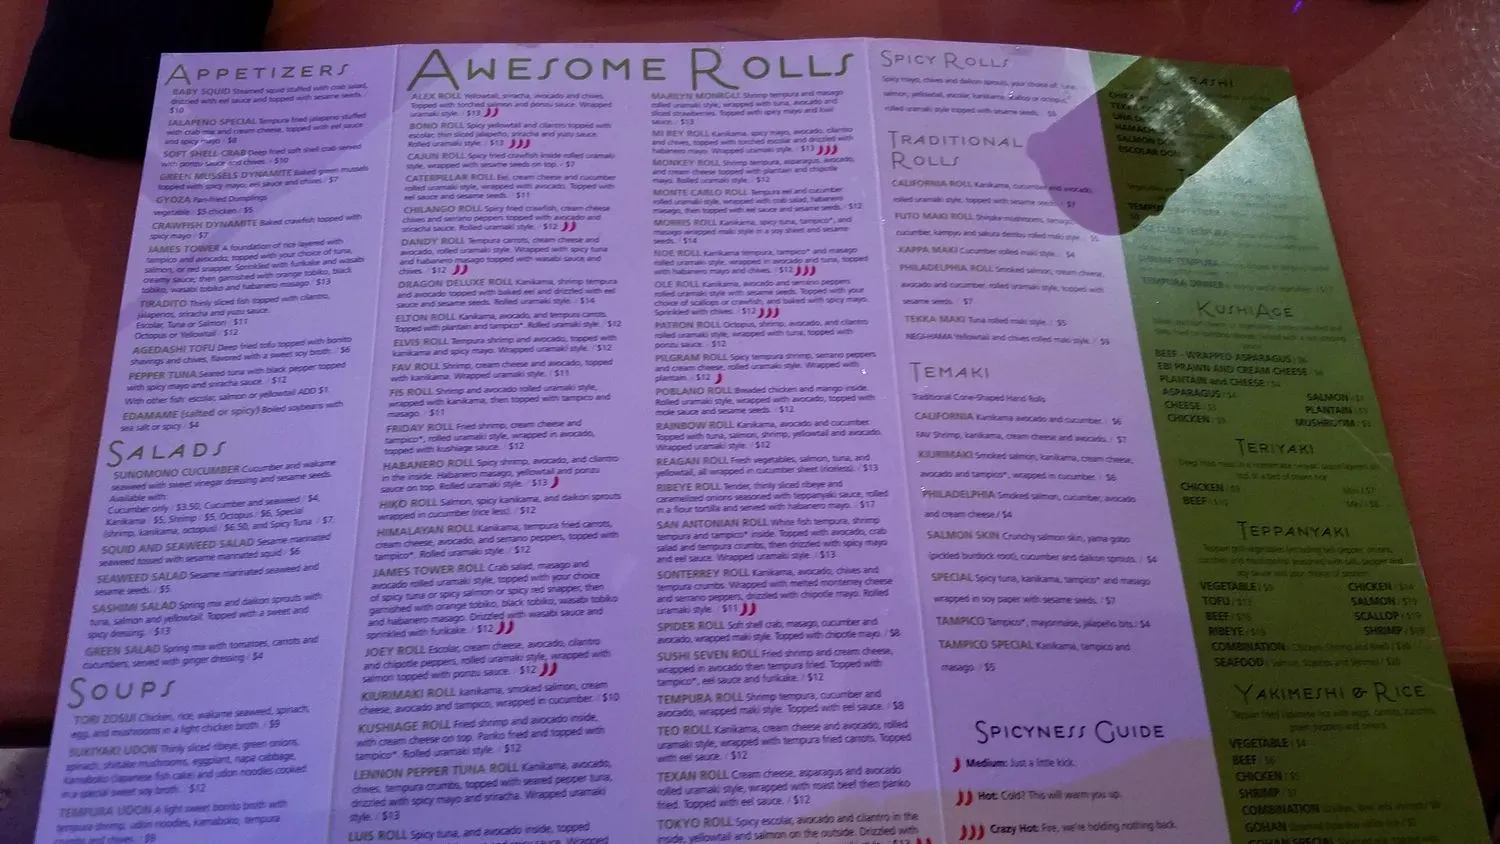 APPETIZERS
BABY SQUID Steamed squid stuffed with crab salad,
drizzled with eel sauce and topped with sesame seeds. /
$10
JALAPENO SPECIAL Tempura fried jalapeno stuffed
with crab mix and cream cheese, topped with eel sauce
and spicy mayo / $8
SOFT SHELL CRAB Deep fried soft shell crab served
with ponzu sauce and chives. / $10
GREEN MUSSELS DYNAMITE Baked green mussels
topped with spicy mayo, eel sauce and chives. / $7
GYOZA Pan-fried Dumplings
vegetable / $5 chicken / $5
CRAWFISH DYNAMITE Baked crawfish topped with
spicy mayo / $7
JAMES TOWER A foundation of rice layered with
tampico and avocado, topped with your choice of tuna,
salmon, or red snapper. Sprinkled with furikake and wasabi
creamy sauce, then garnished with orange tobiko, black
tobiko, wasabi tobiko and habanero masago / $13
TIRADITO Thinly sliced fish topped with cilantro,
jalapenos, sriracha and yuzu sauce.
Escolar, Tuna or Salmon / $11
Octopus or Yellowtail / $12
AGEDASHI TOFU Deep fried tofu topped with bonito
shavings and chives, flavored with a sweet soy broth. / $6
PEPPER TUNA Seared tuna with black pepper topped
with spicy mayo and sriracha sauce. / $12
With other fish: escolar, salmon or yellowtail ADD $1.
EDAMAME (salted or spicy) Boiled soybeans with
sea salt or spicy / $4
SALADS
SUNOMONO CUCUMBER Cucumber and wakame
seaweed with sweet vinegar dressing and sesame seeds.
Available with:
Cucumber only / $3.50, Cucumber and seaweed / $4,
Kanikama / $5, Shrimp / $5, Octopus / $6, Special
(shrimp, kanikama, octopus) / $6.50, and Spicy Tuna / $7.
SQUID AND SEAWEED SALAD Sesame marinated
seaweed tossed with sesame marinated squid / $6
SEAWEED SALAD Sesame marinated seaweed and
sesame seeds. / $5
SASHIMI SALAD Spring mix and daikon sprouts with
tuna, salmon and yellowtail. Topped with a sweet and
spicy dressing. / $13
GREEN SALAD Spring mix with tomatoes, carrots and
cucumbers, served with ginger dressing / $4
SOUPS
TORI ZOSUI Chicken, rice, wakame seaweed, spinach,
egg, and mushrooms in a light chicken broth. / $9
SUKIYAKI UDON Thinly sliced ribeye, green onions,
spinach, shiitake mushrooms, eggplant, napa cabbage,
kamaboko (Japanese fish cake) and udon noodles cooked
in a special sweet soy broth. / $12
TEMPURA UDON A light sweet bonito broth with
tempura shrimp, udon noodles, kamaboko, tempura
crumbs and chives. / $9
AWESOME ROLLS
ALEX ROLL Yellowtail, sriracha, avocado and chives.
Topped with torched salmon and ponzu sauce. Wrapped
uramaki style. / $13
BONO ROLL Spicy yellowtail and cilantro topped with
escolar, thin sliced jalapeño, sriracha and yuzu sauce.
Rolled uramaki style. / $13
CAJUN ROLL Spicy fried crawfish inside rolled uramaki
style, wrapped with sesame seeds on top. / $7
CATERPILLAR ROLL Eel, cream cheese and cucumber
rolled uramaki style, wrapped with avocado. Topped with
eel sauce and sesame seeds. / $11
CHILANGO ROLL Spicy fried crawfish, cream cheese
and serrano peppers topped with avocado and
sriracha sauce. Rolled uramaki style. / $12
DANDY ROLL Tempura carrots, cream cheese and
avocado, rolled uramaki style. Wrapped with spicy tuna
and habanero masago topped with wasabi sauce and
chives. / $12
DRAGON DELUXE ROLL Kanikama, shrimp tempura
and avocado topped with baked eel and drizzled with eel
sauce and sesame seeds. Rolled uramaki style. / $14
ELTON ROLL Kanikama, avocado, and tempura carrots.
Topped with plantain and tampico*. Rolled uramaki style. / $12
ELVIS ROLL Tempura shrimp and avocado, topped with
kanikama and spicy mayo. Wrapped uramaki style. / $12
FAV ROLL Shrimp, cream cheese and avocado, topped
with kanikama. Wrapped uramaki style. / $11
FIS ROLL Shrimp and avocado rolled uramaki style,
wrapped with kanikama, then topped with tampico and
masago. / $11
FRIDAY ROLL Fried shrimp, cream cheese and
tampico*, rolled uramaki style, wrapped in avocado,
topped with kushiage sauce. / $12
HABANERO ROLL Spicy shrimp, avocado, and cilantro
in the inside. Habanero masago, yellowtail and ponzu
sauce on top. Rolled uramaki style. / $13
HIKO ROLL Salmon, spicy kanikama, and daikon sprouts
wrapped in cucumber (rice less). / $12
HIMALAYAN ROLL Kanikama, tempura fried carrots,
cream cheese, avocado, and serrano peppers, topped with
tampico*. Rolled uramaki style. / $12
JAMES TOWER ROLL Crab salad, masago and
avocado rolled uramaki style, topped with your choice
of spicy tuna or spicy salmon or spicy red snapper, then
garnished with orange tobiko, black tobiko, wasabi tobiko
and habanero masago. Drizzled with wasabi sauce and
sprinkled with furikake. / $12
JOEY ROLL Escolar, cream cheese, avocado, cilantro
and chipotle peppers, rolled uramaki style, wrapped with
salmon topped with ponzu sauce. / $12
KIURIMAKI ROLL kanikama, smoked salmon, cream
cheese, avocado and tampico, wrapped in cucumber. / $10
KUSHIAGE ROLL Fried shrimp and avocado inside,
with cream cheese on top. Panko fried and topped with
tampico*. Rolled uramaki style. / $12
LENNON PEPPER TUNA ROLL Kanikama, avocado,
chives, tempura crumbs, topped with seared pepper tuna,
drizzled with spicy mayo and sriracha. Wrapped uramaki
style. / $13
LUIS ROLL Spicy tuna, and avocado inside, topped
MARILYN MONROLL Shrimp tempura and masago
rolled uramaki style, wrapped with tuna, avocado and
sliced strawberries. Topped with spicy mayo and kiwi
sauce. / $13
MI REY ROLL Kanikama, spicy mayo, avocado, cilantro
and chives, topped with torched escolar and drizzled with
habanero mayo. Wrapped uramaki style. / $13
MONKEY ROLL Shrimp tempura, asparagus, avocado,
and cream cheese topped with plantain and chipotle
mayo. Rolled uramaki style. / $12
MONTE CARLO ROLL Tempura eel and cucumber
rolled uramaki style, wrapped with crab salad, habanero
masago, then topped with eel sauce and sesame seeds. / $12
MORRIS ROLL Kanikama, spicy tuna, tampico*, and
masago wrapped maki style in a soy sheet and sesame
seeds. / $14
NOE ROLL Kanikama tempura, tampico* and masago
rolled uramaki style, wrapped in avocado and tuna, topped
with habanero mayo and chives. / $12
OLE ROLL Kanikama, avocado and serrano peppers
rolled uramaki style with sesame seeds. Topped with your
choice of scallops or crawfish, and baked with spicy mayo.
Sprinkled with chives. / $12
PATRON ROLL Octopus, shrimp, avocado, and cilantro
rolled uramaki style, wrapped with tuna, topped with
ponzu sauce. / $12
PILGRAM ROLL Spicy tempura shrimp, serrano peppers
and cream cheese, rolled uramaki style. Wrapped with
plantain. / $12
POBLANO ROLL Breaded chicken and mango inside.
Rolled uramaki style, wrapped with avocado, topped with
mole sauce and sesame seeds. / $12
RAINBOW ROLL Kanikama, avocado and cucumber.
Topped with tuna, salmon, shrimp, yellowtail and avocado.
Wrapped uramaki style. / $12
REAGAN ROLL Fresh vegetables, salmon, tuna, and
yellowtail, all wrapped in cucumber sheet (riceless). / $13
RIBEYE ROLL Tender, thinly sliced ribeye and
caramelized onions seasoned with teppanyaki sauce, rolled
in a flour tortilla and served with habanero mayo. / $17
SAN ANTONIAN ROLL White fish tempura, shrimp
tempura and tampico* inside. Topped with avocado, crab
salad and tempura crumbs, then drizzled with spicy mayo
and eel sauce. Wrapped uramaki style. / $13
SONTERREY ROLL Kanikama, avocado, chives and
tempura crumbs. Wrapped with melted monterey cheese
and serrano peppers, drizzled with chipotle mayo. Rolled
uramaki style. / $11
SPIDER ROLL Soft shell crab, masago, cucumber and
avocado, wrapped maki style. Topped with chipotle mayo. / $8
SUSHI SEVEN ROLL Fried shrimp and cream cheese,
wrapped in avocado then tempura fried. Topped with
tampico*, eel sauce and furikake. / $12
TEMPURA ROLL Shrimp tempura, cucumber and
avocado, wrapped maki style. Topped with eel sauce. / $8
TEO ROLL Kanikama, cream cheese and avocado, rolled
uramaki style, wrapped with tempura fried carrots. Topped
with eel sauce. / $12
TEXAN ROLL Cream cheese, asparagus and avocado
rolled uramaki style, wrapped with roast beef then panko
fried. Topped with eel sauce. / $12
TOKYO ROLL Spicy escolar, avocado and cilantro in the
inside, yellowtail and salmon on the outside. Drizzled with
SPICY ROLLS
Spicy mayo, chives and daikon sprouts, your choice of: tuna,
salmon, yellowtail, escolar, kanikama, scallop or octopus,
rolled uramaki style topped with sesame seeds. / $6
TRADITIONAL
ROLLS
CALIFORNIA ROLL Kanikama, cucumber and avocado,
rolled uramaki style, topped with sesame seeds. / $7
FUTO MAKI ROLL Shiitake mushroom, tamago,
cucumber, kampyo and sakura dembu rolled maki style. / $5
KAPPA MAKI Cucumber rolled maki style. / $4
PHILADELPHIA ROLL Smoked salmon, cream cheese,
avocado and cucumber, rolled uramaki style, topped with
sesame seeds. / $7
TEKKA MAKI Tuna rolled maki style. / $5
NEGI-HAMA Yellowtail and chives rolled maki style. / $5
TEMAKI
Traditional Cone-Shaped Hand Rolls
CALIFORNIA Kanikama avocado and cucumber. / $6
FAV Shrimp, kanikama, cream cheese and avocado. / $7
KIURIMAKI Smoked salmon, kanikama, cream cheese,
avocado and tampico*, wrapped in cucumber. / $6
PHILADELPHIA Smoked salmon, cucumber, avocado
and cream cheese / $4
SALMON SKIN Crunchy salmon skin, yama gobo
(pickled burdock root), cucumber and daikon sprouts. / $4
SPECIAL Spicy tuna, kanikama, tampico* and masago
wrapped in soy paper with sesame seeds. / $7
TAMPICO Tampico*, mayonnaise, jalapeño bits / $4
TAMPICO SPECIAL Kanikama, tampico and
masago / $5
SPICYNESS GUIDE
Medium: Just a little kick.
Hot: Cold? This will warm you up.
Crazy Hot: Fire, we're holding nothing back.
SALMON DON
ESCOLAR DON
SHRIMP TEMPURA
TEMPURA DINNER
KUSHIAGE
BEEF - WRAPPED ASPARAGUS / $6
EBI PRAWN AND CREAM CHEESE / $6
PLANTAIN and CHEESE / $4
ASPARAGUS / $4 SALMON
CHEESE / $3 PLANTAIN
CHICKEN MUSHROOM
TERIYAKI
CHICKEN Mini / $7
BEEF Mini / $8
TEPPANYAKI
VEGETABLE / $9 CHICKEN / $14
TOFU SALMON
BEEF SCALLOP
RIBEYE SHRIMP
COMBINATION
SEAFOOD
YAKIMESHI & RICE
VEGETABLE / $4
BEEF / $6
CHICKEN / $5
SHRIMP / $7
COMBINATION
GOHAN
GOHAN SPECIAL